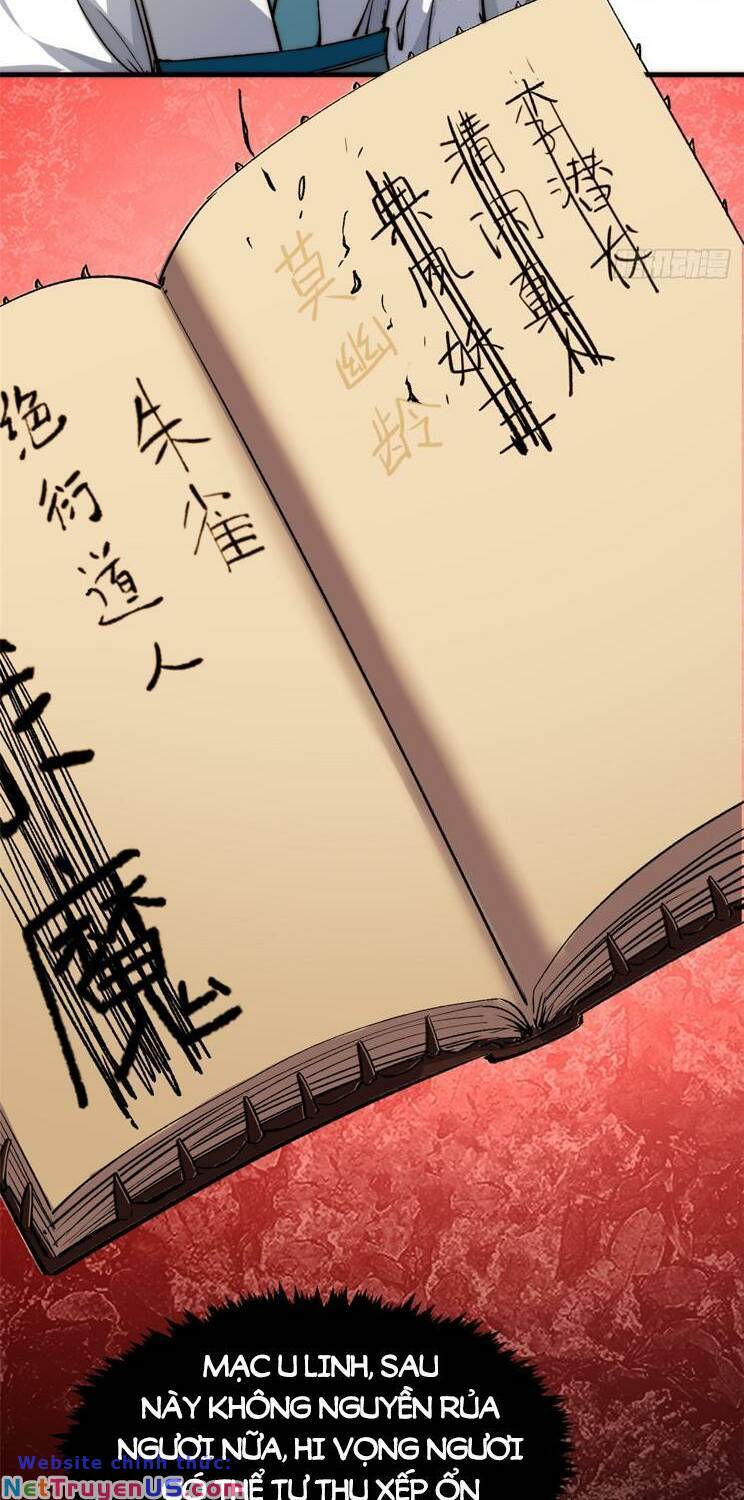 李潜伏
清雨真人
典风妖君
莫幽龄
朱雀
绝衍道人
魔
MẠC U LINH, SAU
NÀY KHÔNG NGUYỀN RỦA
NGƯƠI NỮA, HI VỌNG NGƯƠI
CÓ THỂ TỰ THU XẾP ỔN
Website chính thức:
NetTruyenUS.com